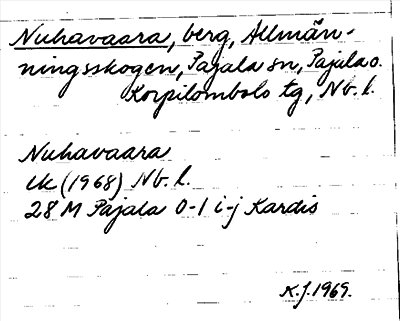 Nuhavaara, berg, Allmän-
ningsskogen, Pajala sn, Pajala o.
Korpilombolo tg, Nb. l.
Nuhavaara
Ek (1968) Nb. l.
28 M Pajala 0-1 i-j Kardis
K.J. 1969.